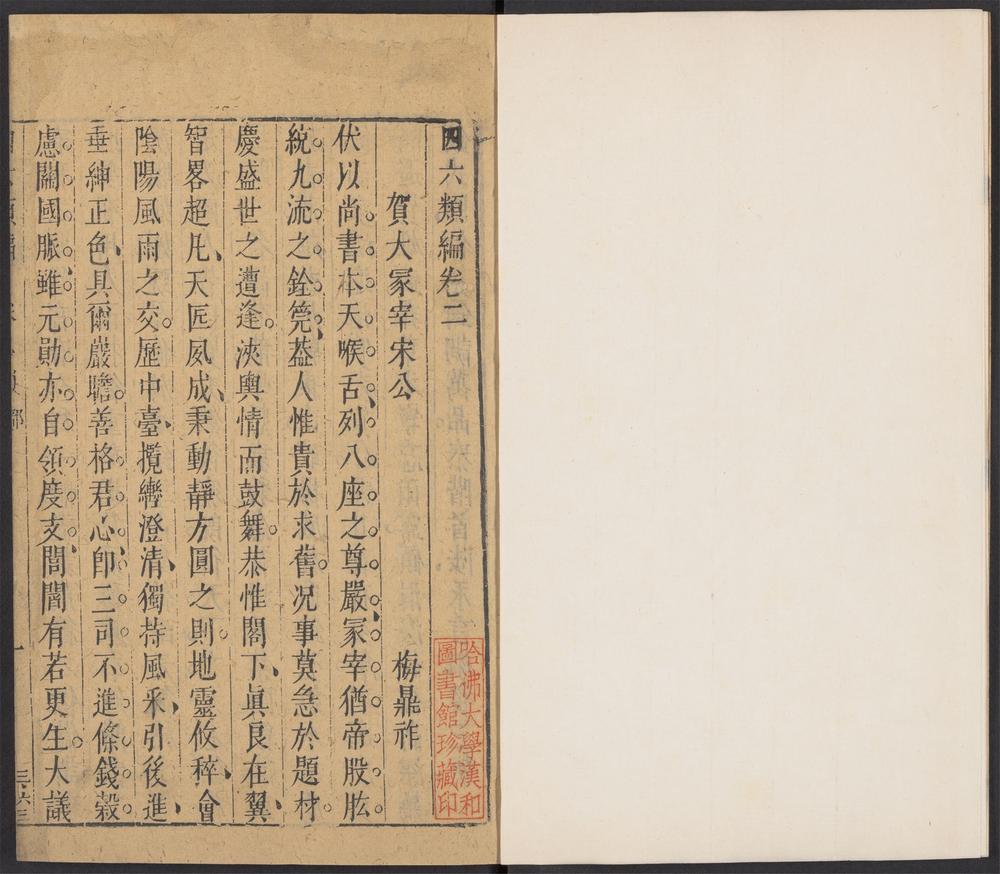 四六類編卷二
賀大冢宰宋公
梅鼎祚
伏以尚書本天喉舌列八座之尊嚴冢宰猶帝股肱
統九流之銓筦葢人惟貴於求舊况事莫急於題材
慶盛世之遭逢浹輿情而鼓舞恭惟閣下眞良在翼
智畧超凡天匠夙成秉動靜方圓之則地靈攸稡會
陰陽風雨之交歷中臺攬轡澄清獨持風釆引後進
垂紳正色具爾巖瞻善格君心卽三司不進條錢穀
慮關國脈雖元勛亦自領度支誾誾有若更生大議
哈佛大學漢和
圖書館珍藏印